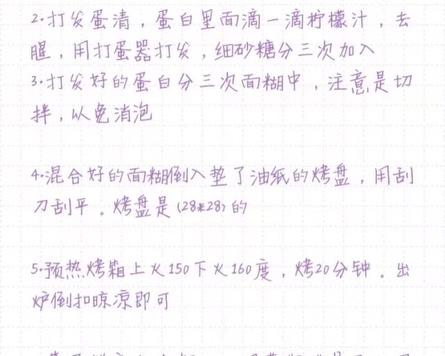 2.打发蛋清，蛋白里面滴一滴柠檬汁，去
腥，用打蛋器打发，细砂糖分三次加入
3.打发好的蛋白分三次面糊中，注意是切
拌，以免消泡
4.混合好的面糊倒入垫了油纸的烤盘，用刮
刀刮平。烤盘是(28*28)的
5.预热烤箱上火150下火160度，烤20分钟。出
炉倒扣晾凉即可